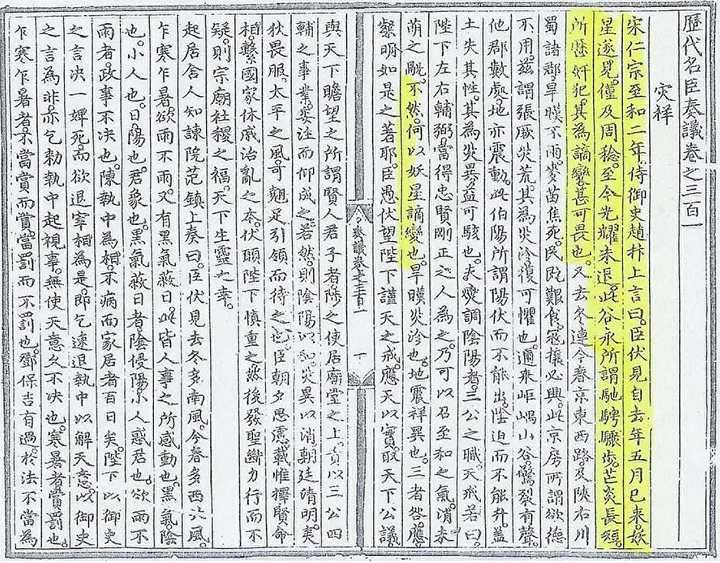 歷代名臣奏議卷之三百一
災祥
宋仁宗至和二年。侍御史趙抃上言曰。臣伏見自去年五月已來妖
星遂見。僅及周稔。至今光耀未退。此谷永所謂馳騁驟步。芒炎長短。
所歷奸犯。其為謫變。甚可畏也。又去冬連今春。京東西路。及陝右川
蜀諸郡。旱暵不雨。麥苗焦死。民既艱食。寇攘必興。此京房所謂欲德
不用。茲謂張。厥災荒。其為災沴。復可懼也。邇來岠嵎山谷。驚裂有聲。
他郡數處。地亦震動。此伯陽所謂陽伏而不能出。陰迫而不能升。蓋
土失其性。其為災孽。益可駭也。夫燮調陰陽者。三公之職。天戒若曰
陛下左右輔弼。當得忠賢剛正之人為之。乃可以召至和之氣。消未
萌之眚。不然。何以妖星謫變也。旱暵災沴也。地震祥異也。三者咎應。
明如是之著耶。臣愚伏望陛下謹天之戒。應天以實。取天下公議
奏議卷之三百一
一
與天下瞻望之所謂賢人君子者。陟之使居廟堂之上。責以三公四
輔之事業。委注而仰成之。若然。則陰陽以和。災異以消。朝廷清明。夷
狄畏服。太平之風。可翹足引領而待之也。臣朝夕思慮。載惟擇賢命
相。繫國家休戚治亂之本。伏願陛下慎重之。然後發聖斷。力行而不
疑。則宗廟社稷之福。天下生靈之幸。
起居舍人知諫院范鎮上奏曰。臣伏見去冬多南風。今春多西北風。
乍寒乍暑。欲雨不雨。又有黑氣蔽日。此皆人事之所感動也。黑氣。陰
也。小人也。日。陽也。君象也。黑氣蔽日者。陰侵陽。小人惑君也。欲雨不
雨者。政事不決也。陳執中為相。不病而家居者百日矣。陛下以御史
之言決一婢死。而欲退宰相為是。即乞速退執中。以解天意。以御史
之言為非。亦乞勑執中起視事。無使天意久不決也。寒暑者。賞罰也。
乍寒乍暑者。不當賞而賞。當罰而不罰也。鄧保吉有過。於法不當為